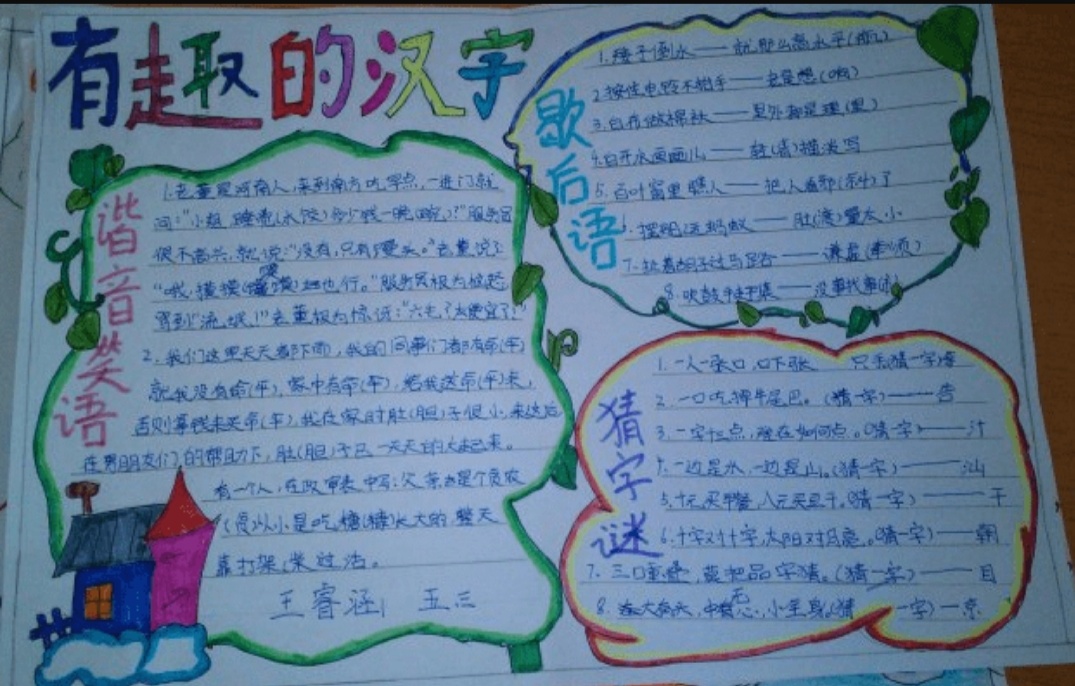 有趣的汉字
谐音笑语
1.老董是河南人,来到南方吃早点,一进门就
问:"小姐,睡觉(水饺)多少钱一晚(碗)?"服务员
很不高兴,就说:"没有,只有馒头。"老董说了
"哦,摸摸(馍馍)也行。"服务员极为
骂到"流氓!"老董极为惊讶:"六毛?太便宜了!"
2.我们这里天天都下雨,我的同事们都有命(伞)
就我没有命(伞),家中有命(伞),给我送命(伞)来,
否则拿钱去买命(伞),我在家时肚(胆)子很小,来这后
在男朋友们的帮助下,肚(胆)子已一天天的大起来。
有一个人,在政审表中写:父亲是个贫农
从小是吃糖(糠)长大的,整天
靠打架(柴)过活。
王睿涵 五三
歇后语
1.矮子倒水——就那么高水平(瓶)
2.按住电铃不抬手——老是想(响)
3.白布做棉袄——里外都是理(里)
4.白开水画画儿——轻(清)描淡写
5.百叶窗里瞧人——把人看邪(斜)了
6.摆船运蚂蚁——肚(渡)量太小
7.扯着胡子过马路——谦虚(牵须)
8.吹鼓手赶集——没事找事
猜字谜
1.一人一张口,口下长只手(猜一字)
2.一口吃掉牛尾巴。(猜一字)——告
3.一字十三点,难在如何点。(猜一字)——汁
4.一边是水,一边是山。(猜一字)——汕
5.十元买早餐,八元买豆干。(猜一字)——干
6.十字对十字,太阳对月亮。(猜一字)——朝
7.三口重叠,莫把品字猜。(猜一字)——目
8.大为头,中无心,小年身(猜一字)—京